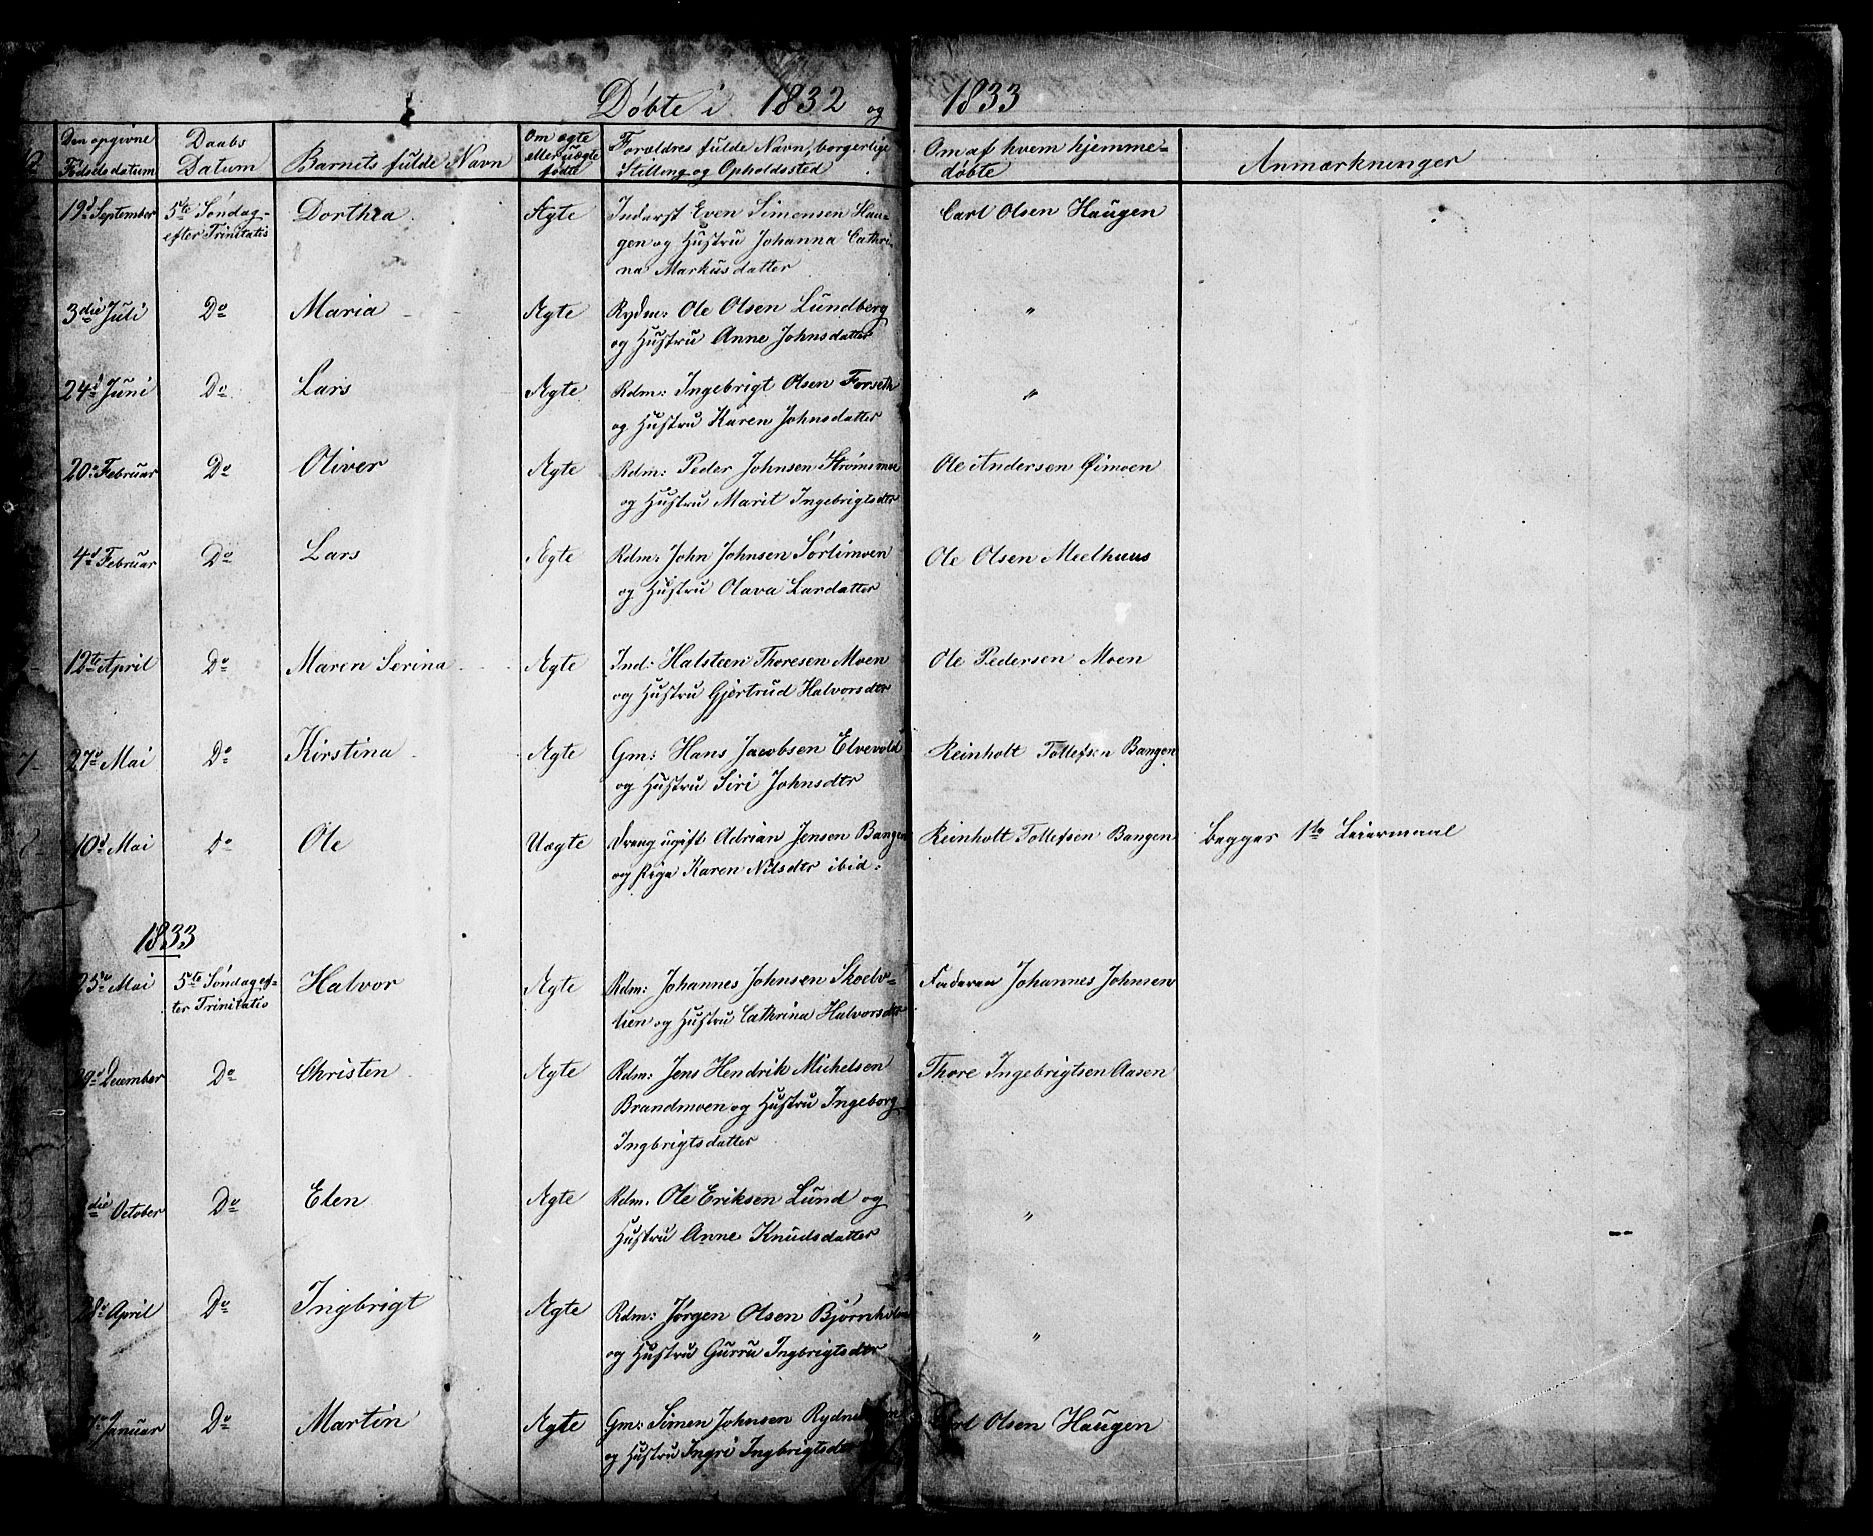 Döbte i 1832 og 1833
Den opgivne Fødselsdatum | Daabs Datum | Barnets fulde Navn | Om ægte eller uægte fødte | Forældres fulde Navn, borgerlige Stilling og Opholdssted | Om af hvem hjemmedøbte | Anmærkninger
19d September | 5te Søndag efter Trinitatis | Dorthea | Ægte | Inderst Even Simensen Hau-
gen og Hustru Johanna Cathri-
na Markusdatter | Carl Olsen Haugen
3die Juli | Do | Maria | Ægte | Rydm: Ole Olsen Lundberg
og Hustru Anne Johnsdatter | "
24d Juni | Do | Lars | Ægte | Rdm: Ingebrigt Olsen Forseth
og Hustru Karen Johnsdatter | "
20d Februar | Do | Oliver | Ægte | Rdm: Peder Johnsen Strømsmoe
og Hustru Marit Ingebrigtsdtr | Ole Andersen Øimoen
4d Februar | Do | Lars | Ægte | Rdm: John Johnsen Sørlimoen
og Hustru Olava Larsdatter | Ole Olsen Meelhuus
12te April | Do | Maren Serina | Ægte | Ind: Halsteen Thoresen Moen
og Hustru Gjertrud Halvorsdtr | Ole Pedersen Moen
7 | 27d Mai | Do | Kirstina | Ægte | Gm: Hans Jacobsen Elvevold
og Hustru Siri Johnsdtr | Reinholt Tollefsen Bangen
10d Mai | Do | Ole | Uægte | Dreng ugift Adrian Jensen Bangen
og Pige Karen Nilsdtr ibid: | Reinholt Tollefsen Bangen | begges 1te Leiermaal
1833
25de Mai | 5te Søndag ef-
ter Trinitatis | Halvor | Ægte | Rdm: Johannes Johnsen
og Hustru Cathrina Halvorsdtr | Faderen Johannes Johnsen
29d December | Do | Christen | Ægte | Rdm: Jens Hendrik Michelsen
Brandmoen og Hustru Ingeborg
Ingbrigtsdatter | Thore Ingebrigtsen Aasen
die October | Do | Elen | Ægte | Rdm. Ole Eriksen Lund og
Hustru Anne Knudsdatter | "
28d April | Do | Ingbrigt | Ægte | Rdm: Jørgen Olsen
og Hustru Gurru Ingbrigtsdtr | "
Januar | Do | Martin | Ægte | Gm: Simen Johnsen
og Hustru Ingri Ingbrigtsdtr | Carl Olsen Haugen